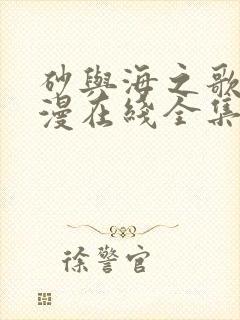 砂與海之歌
漫在綫全集
徐警官